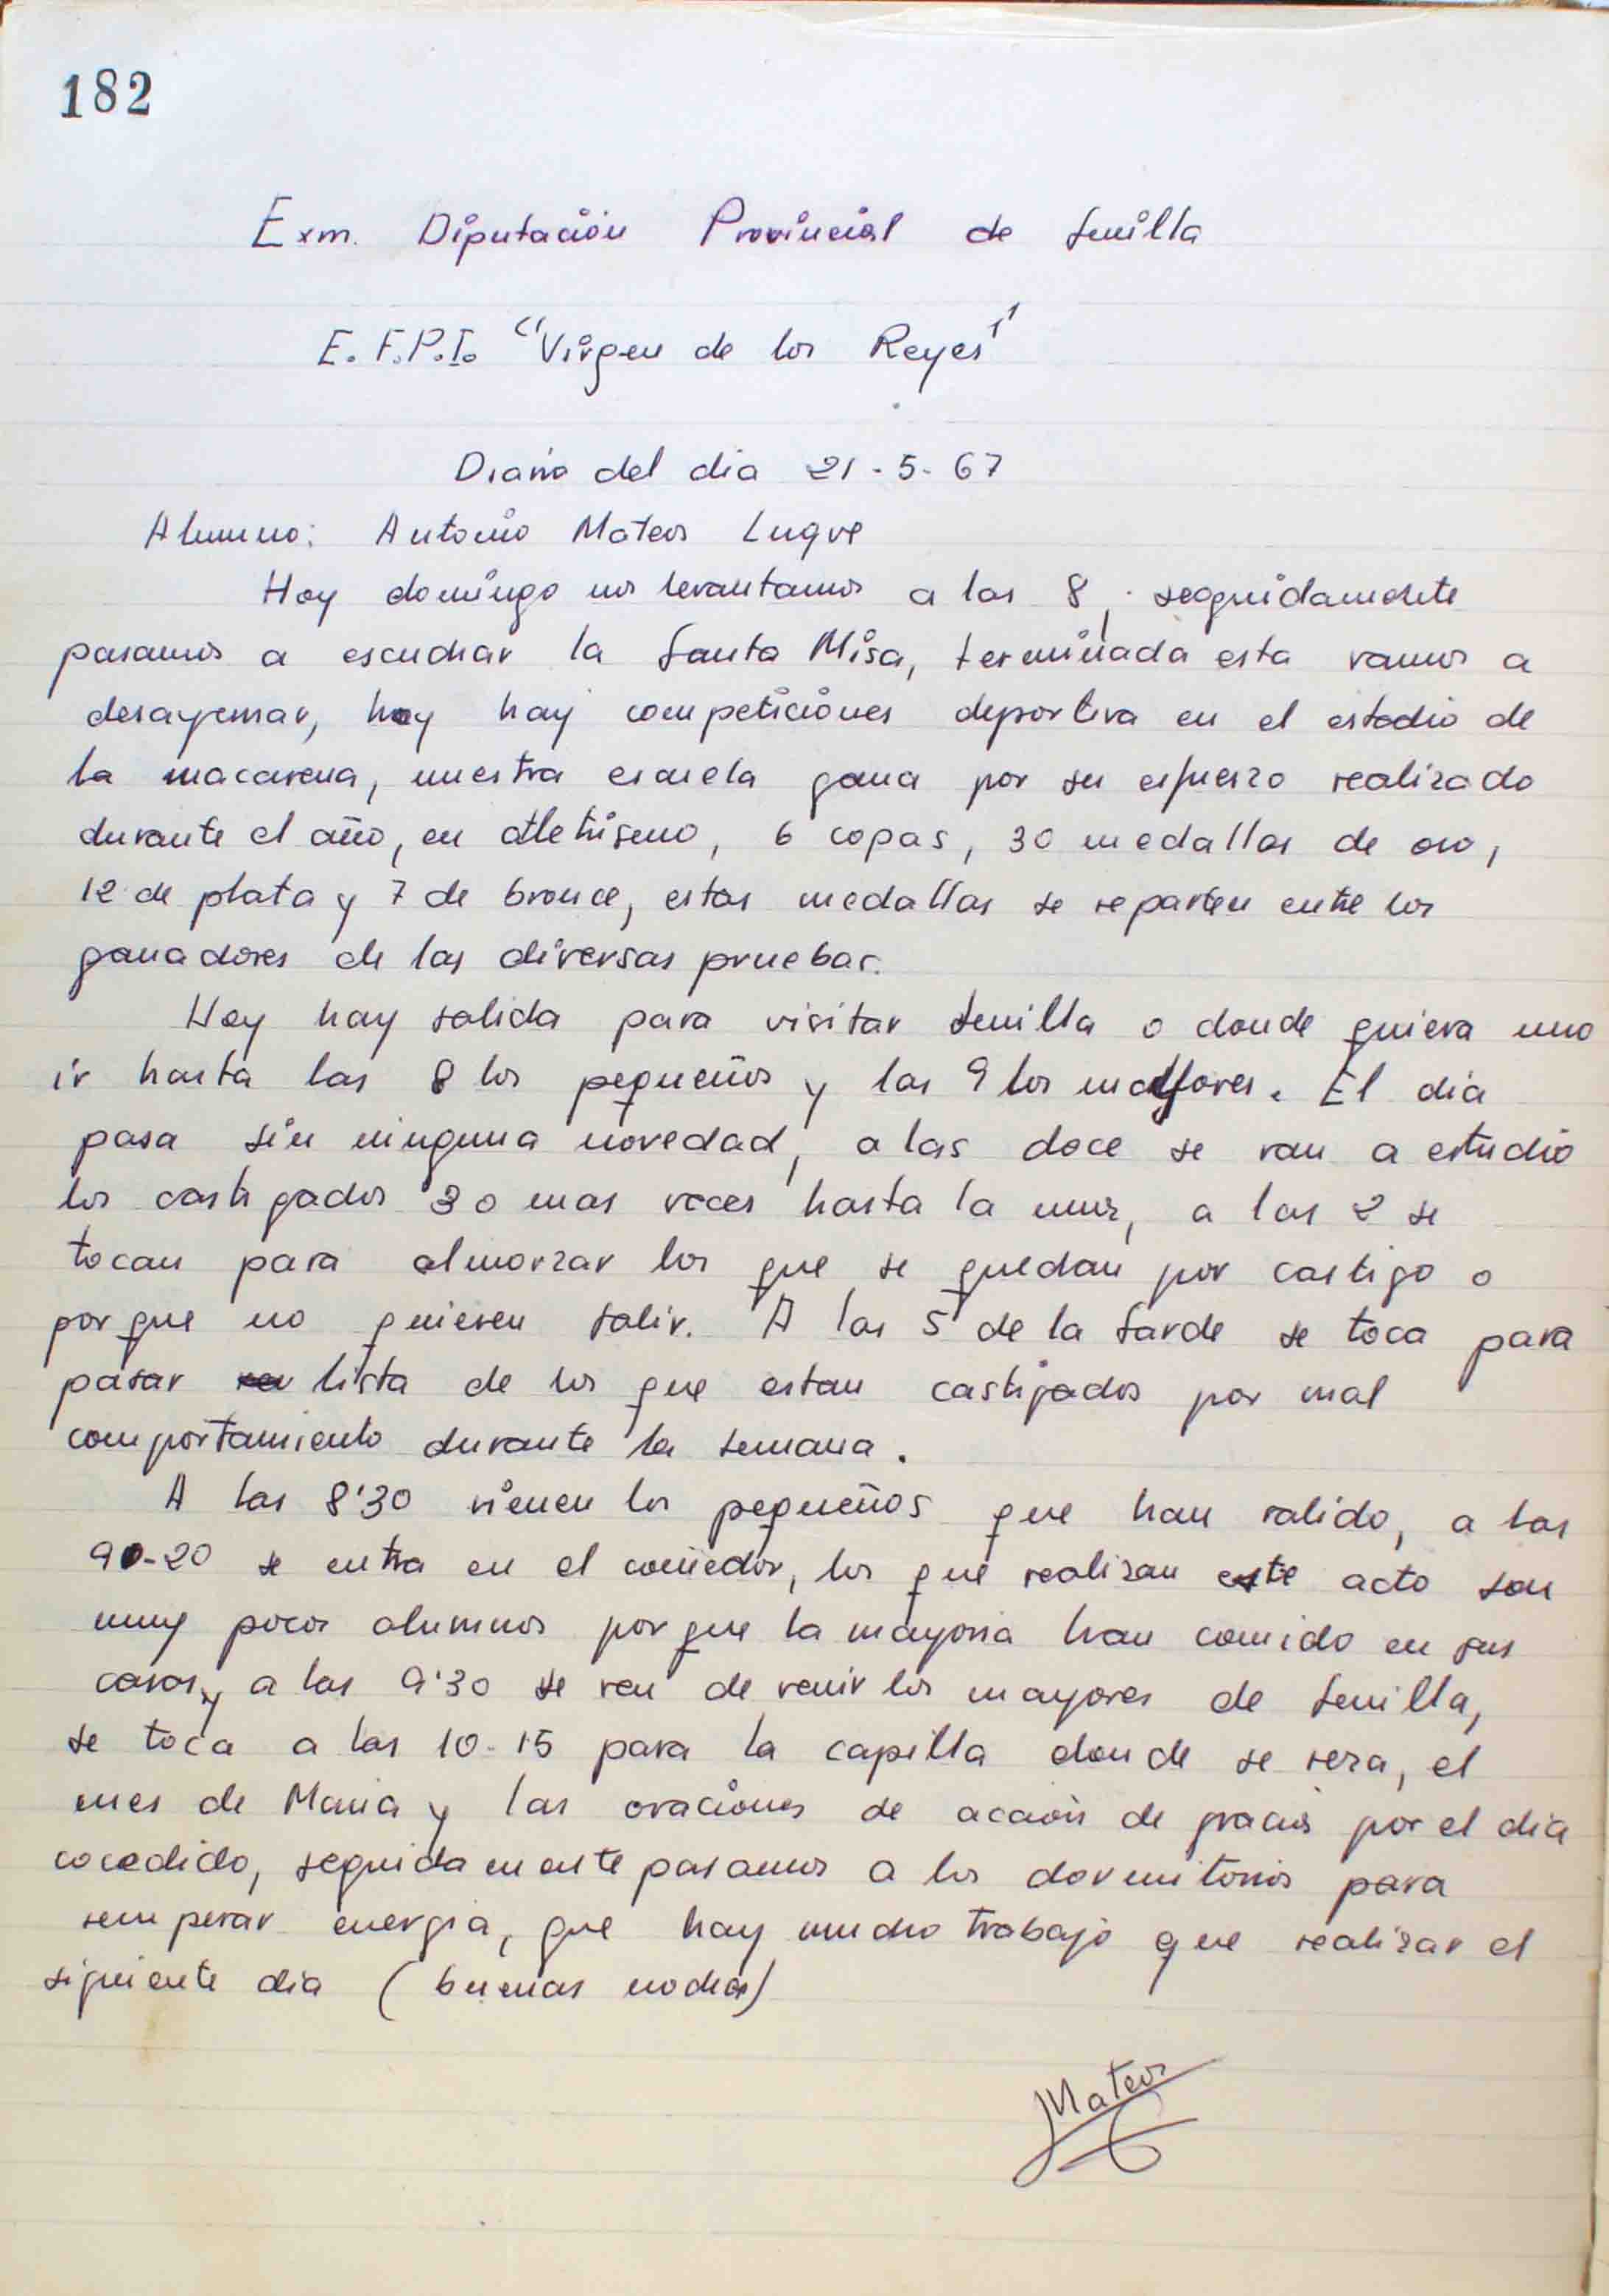 182
Exm. Diputación Provincial de Sevilla
E. F.P.I. "Virgen de los Reyes"
Diario del dia 21-5-67
Alumno: Antonio Mateos Luque
Hoy domingo nos levantamos a las 8, seguidamente
pasamos a escuchar la Santa Misa, terminada esta vamos a
desayunar, hoy hay competiciones deportiva en el estadio de
la macarena, nuestra escuela gana por su esfuerzo realizado
durante el año, en atletismo, 6 copas, 30 medallas de oro,
12 de plata y 7 de bronce, estas medallas se reparten entre los
ganadores de las diversas pruebas.
Hoy hay salida para visitar Sevilla o donde quiera uno
ir hasta las 8 los pequeños y las 9 los mayores. El dia
pasa sin ninguna novedad, a las doce se van a estudio
los castigados 30 mas veces hasta la una, a las 2 se
tocan para almorzar los que se quedan por castigo o
porque no quieren salir. A las 5 de la tarde se toca para
pasar lista de los que estan castigados por mal
comportamiento durante la semana.
A las 8'30 vienen los pequeños que han salido, a las
9-20 se entra en el comedor, los que realizan este acto son
muy pocos alumnos porque la mayoria han comido en sus
casas, y a las 9'30 se ven de venir los mayores de Sevilla,
se toca a las 10-15 para la capilla donde se reza, el
mes de Maria y las oraciones de acción de gracias por el dia
cocedido, seguidamente pasamos a los dormitorios para
recuperar energia, que hay mucho trabajo que realizar el
siguiente dia (buenas noches)
Mateos